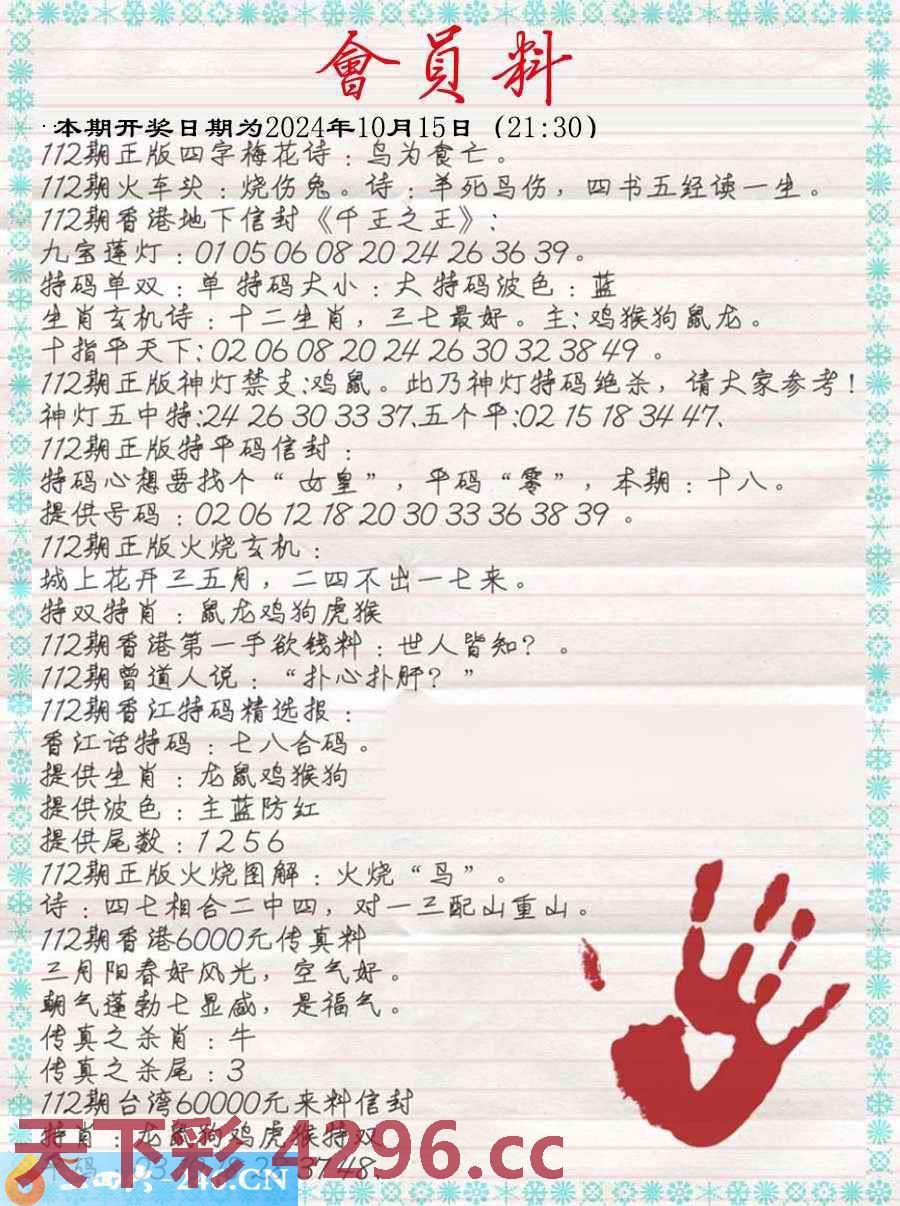 會員料
·本期开奖日期为2024年10月15日（21:30）
112期正版四字梅花诗：鸟为食亡。
112期火车头：烧伤兔。诗：羊死鸟伤，四书五经读一生。
112期香港地下信封《千王之王》：
九宝莲灯：01 05 06 08 20 24 26 36 39。
特码单双：单 特码大小：大 特码波色：蓝
生肖玄机诗：十二生肖，三七最好。主：鸡猴狗鼠龙。
十指平天下：02 06 08 20 24 26 30 32 38 49 。
112期正版神灯禁支：鸡鼠。此乃神灯特码绝杀，请大家参考！
神灯五中特：24 26 30 33 37、五个平：02 15 18 34 47、
112期正版特平码信封：
特码心想要找个“女皇”，平码“零”，本期：十八。
提供号码：02 06 12 18 20 30 33 36 38 39 。
112期正版火烧玄机：
城上花开三五月，二四不出一七来。
特双特肖：鼠龙鸡狗虎猴
112期香港第一手欲钱料：世人皆知？。
112期曾道人说：“扑心扑肝？”
112期香江特码精选报：
香江话特码：七八合码。
提供生肖：龙鼠鸡猴狗
提供波色：主蓝防红
提供尾数：1 2 5 6
112期正版火烧图解：火烧“鸟”。
诗：四七相合二中四，对一三配山重山。
112期香港6000元传真料
三月阳春好风光，空气好。
朝气蓬勃七显威，是福气。
传真之杀肖：牛
传真之杀尾：3
112期台湾60000元来料信封
特肖：龙鼠狗鸡虎猴特双
天下彩 4296.cc
37 48、
246.CN